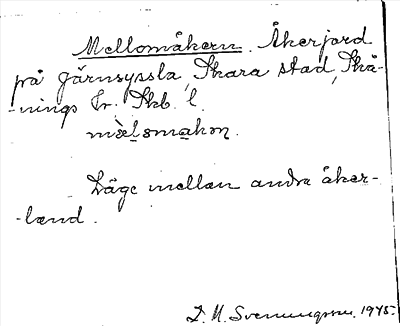 Mellomåkern. Åkerjord
på Järnsyssla, Skara stad, Skå-
-nings hr. Skb. l.
mèlsmakɷn.
Läge mellan andra åker-
-land.
L. M. Svenungsson. 1945.